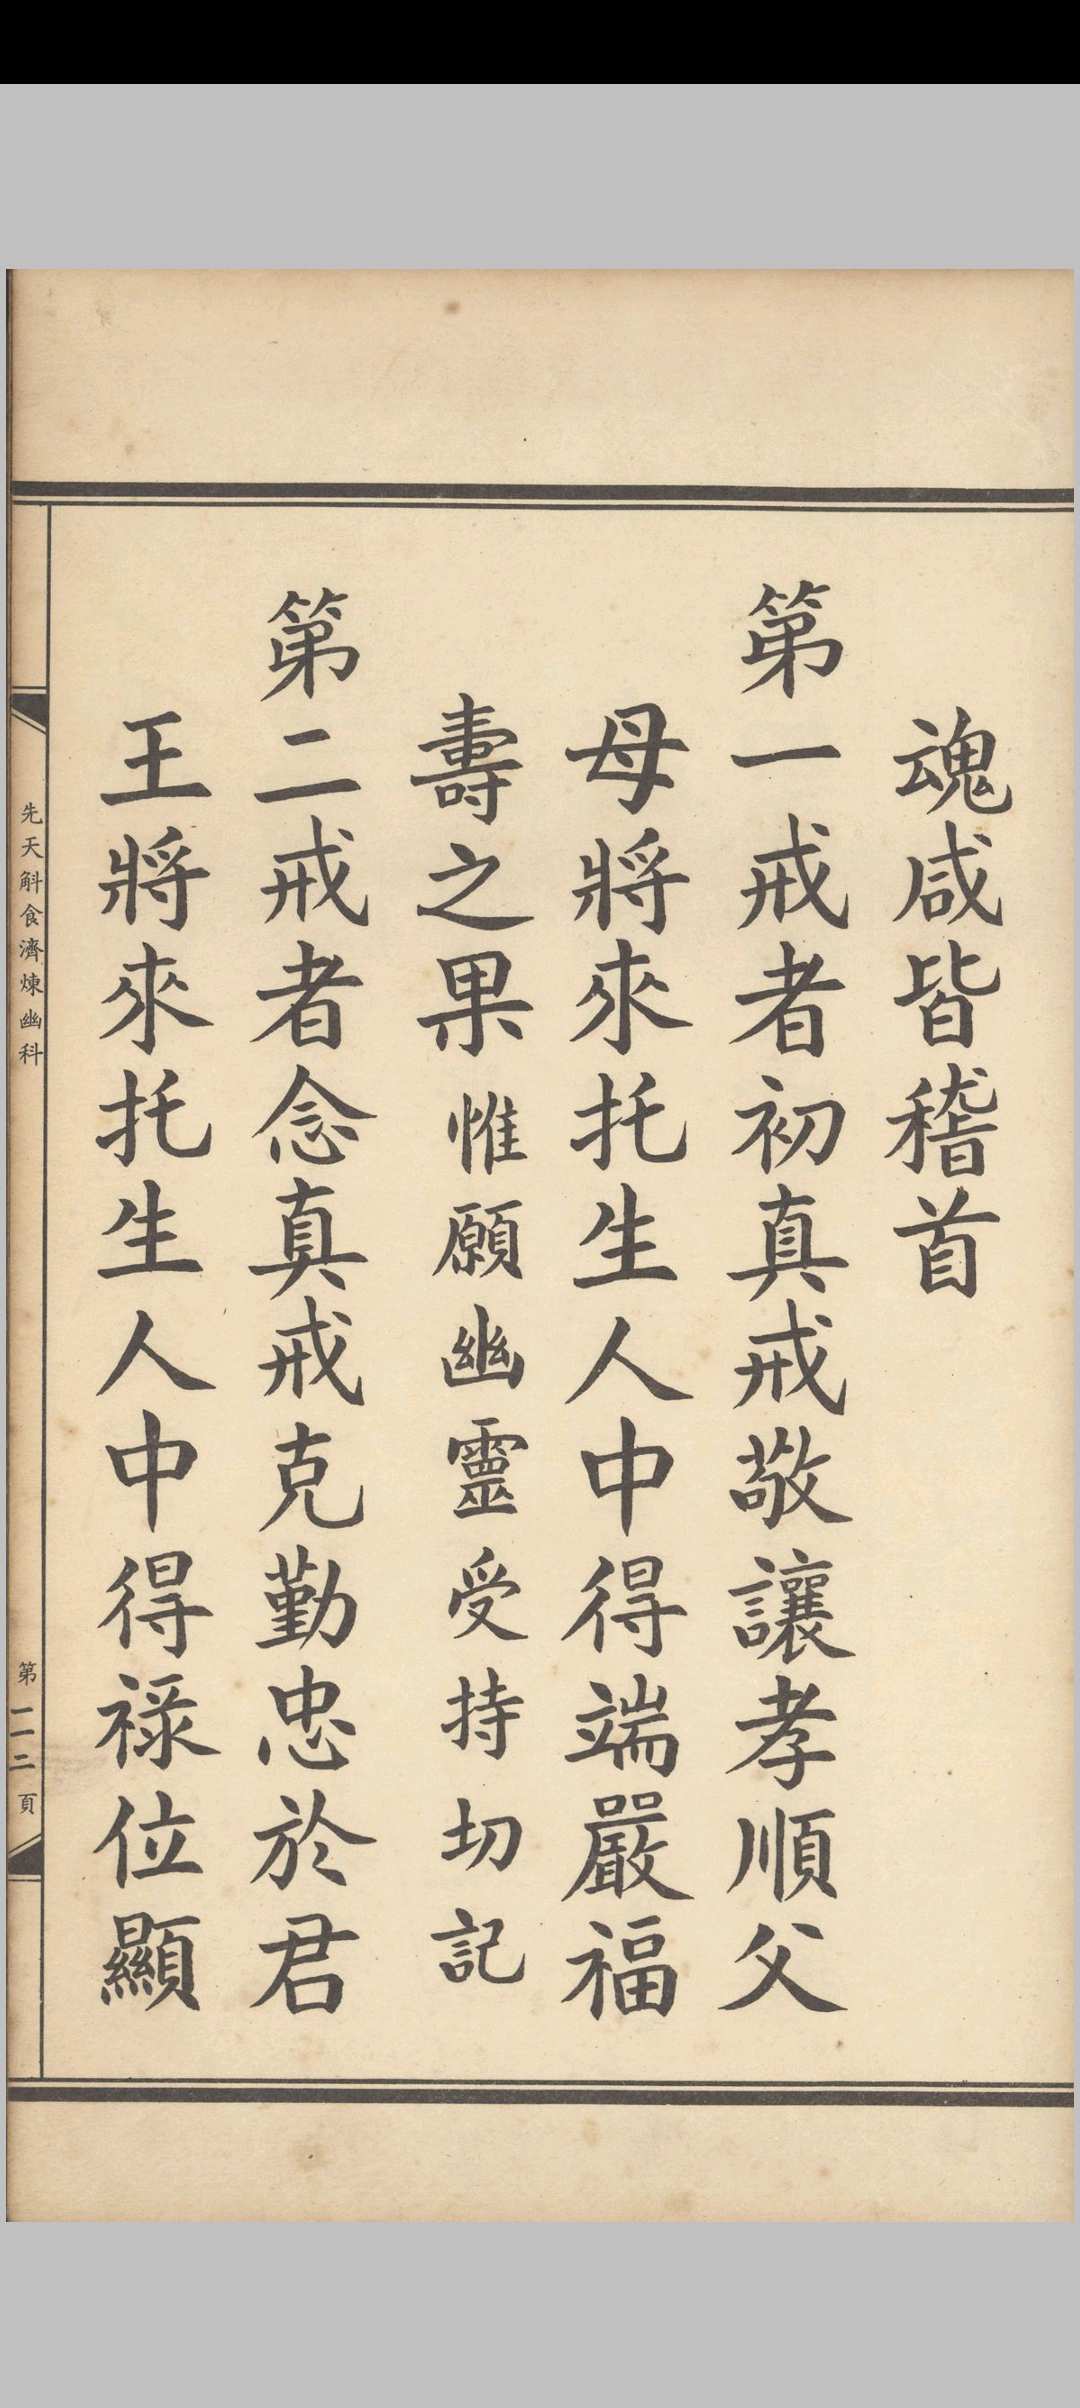 魂咸皆稽首
第一戒者初真戒敬讓孝順父
母將來托生人中得端嚴福
壽之果惟願幽靈受持切記
第二戒者念真戒克勤忠於君
王將來托生人中得祿位顯
先天斛食濟煉幽科
第一一二頁